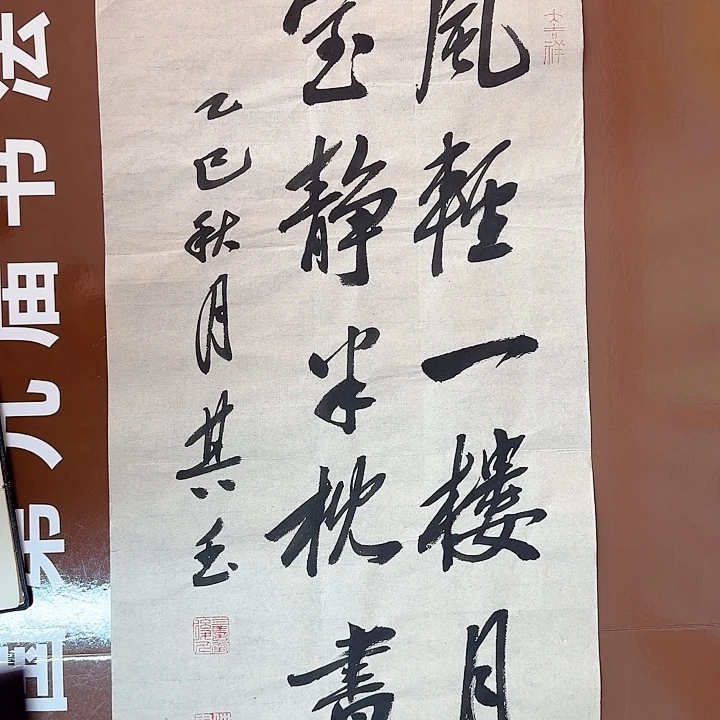 大吉祥
風輕一樓月
室靜半枕書
乙巳秋月其玉
国第九届书法